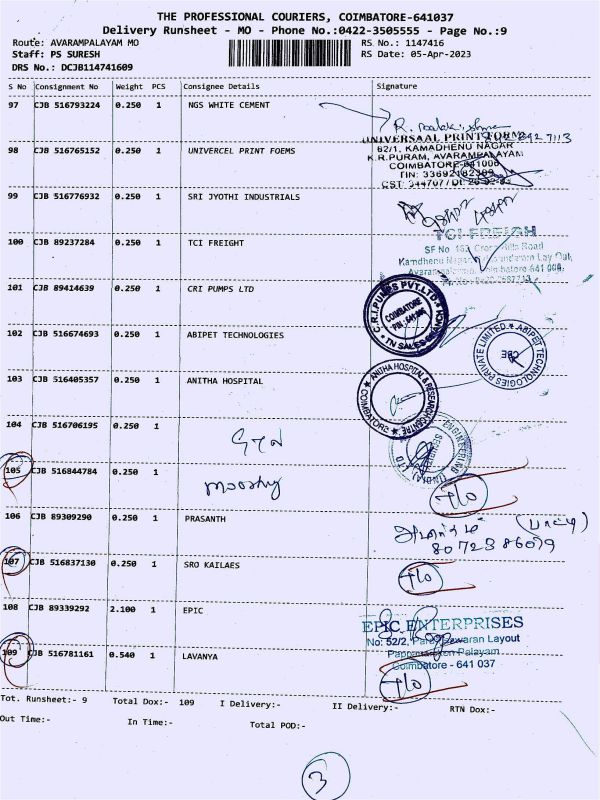 THE PROFESSIONAL COURIERS, COIMBATORE-641037
Delivery Runsheet - MO - Phone No.:0422-3505555 - Page No.:9
Route: AVARAMPALAYAM MO RS No.: 1147416
Staff: PS SURESH RS Date: 05-Apr-2023
DRS No.: DCJB114741609
S No Consignment No Weight PCS Consignee Details Signature
97 CJB 516793224 0.250 1 NGS WHITE CEMENT
98 CJB 516765152 0.250 1 UNIVERCEL PRINT FOEMS
UNIVERSAAL PRINT FORMS
62/1, KAMADHENU NAGAR
K.R.PURAM, AVARAMPALAYAM
COIMBATORE-641006
TIN: 33692182309
99 CJB 516776932 0.250 1 SRI JYOTHI INDUSTRIALS
100 CJB 89237284 0.250 1 TCI FREIGHT
TCI-FREIGH
101 CJB 89414639 0.250 1 CRI PUMPS LTD
C.R.I.PUMPS PVT.LTD
COIMBATORE
102 CJB 516674693 0.250 1 ABIPET TECHNOLOGIES
ABIPET TECHNOLOGIES PRIVATE LIMITED
CBE
103 CJB 516405357 0.250 1 ANITHA HOSPITAL
ANITHA HOSPITAL & RESEARCH CENTRE
COIMBATORE
104 CJB 516706195 0.250 1
ENGINEERING
(INDIA) LTD
105 CJB 516844784 0.250 1 moorthy T/O
106 CJB 89309290 0.250 1 PRASANTH
8072386079
107 CJB 516837130 0.250 1 SRO KAILAES T/O
108 CJB 89339292 2.100 1 EPIC
EPIC ENTERPRISES
No: 52/2, Parameswaran Layout
Pappanaicken Palayam
Coimbatore - 641 037
109 CJB 516781161 0.540 1 LAVANYA T/O
Tot. Runsheet:- 9 Total Dox:- 109 I Delivery:- II Delivery:- RTN Dox:-
Out Time:- In Time:- Total POD:-
3